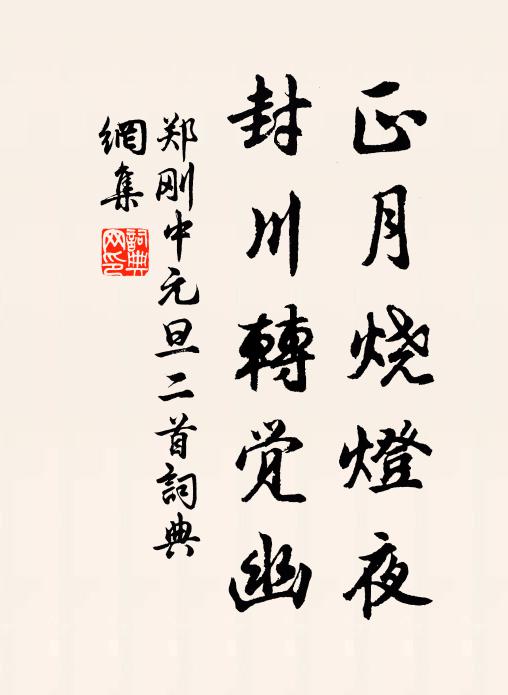 正月烧燈夜
封川轉觉幽
郑刚中元旦二首詞典
網集
詞典
网印